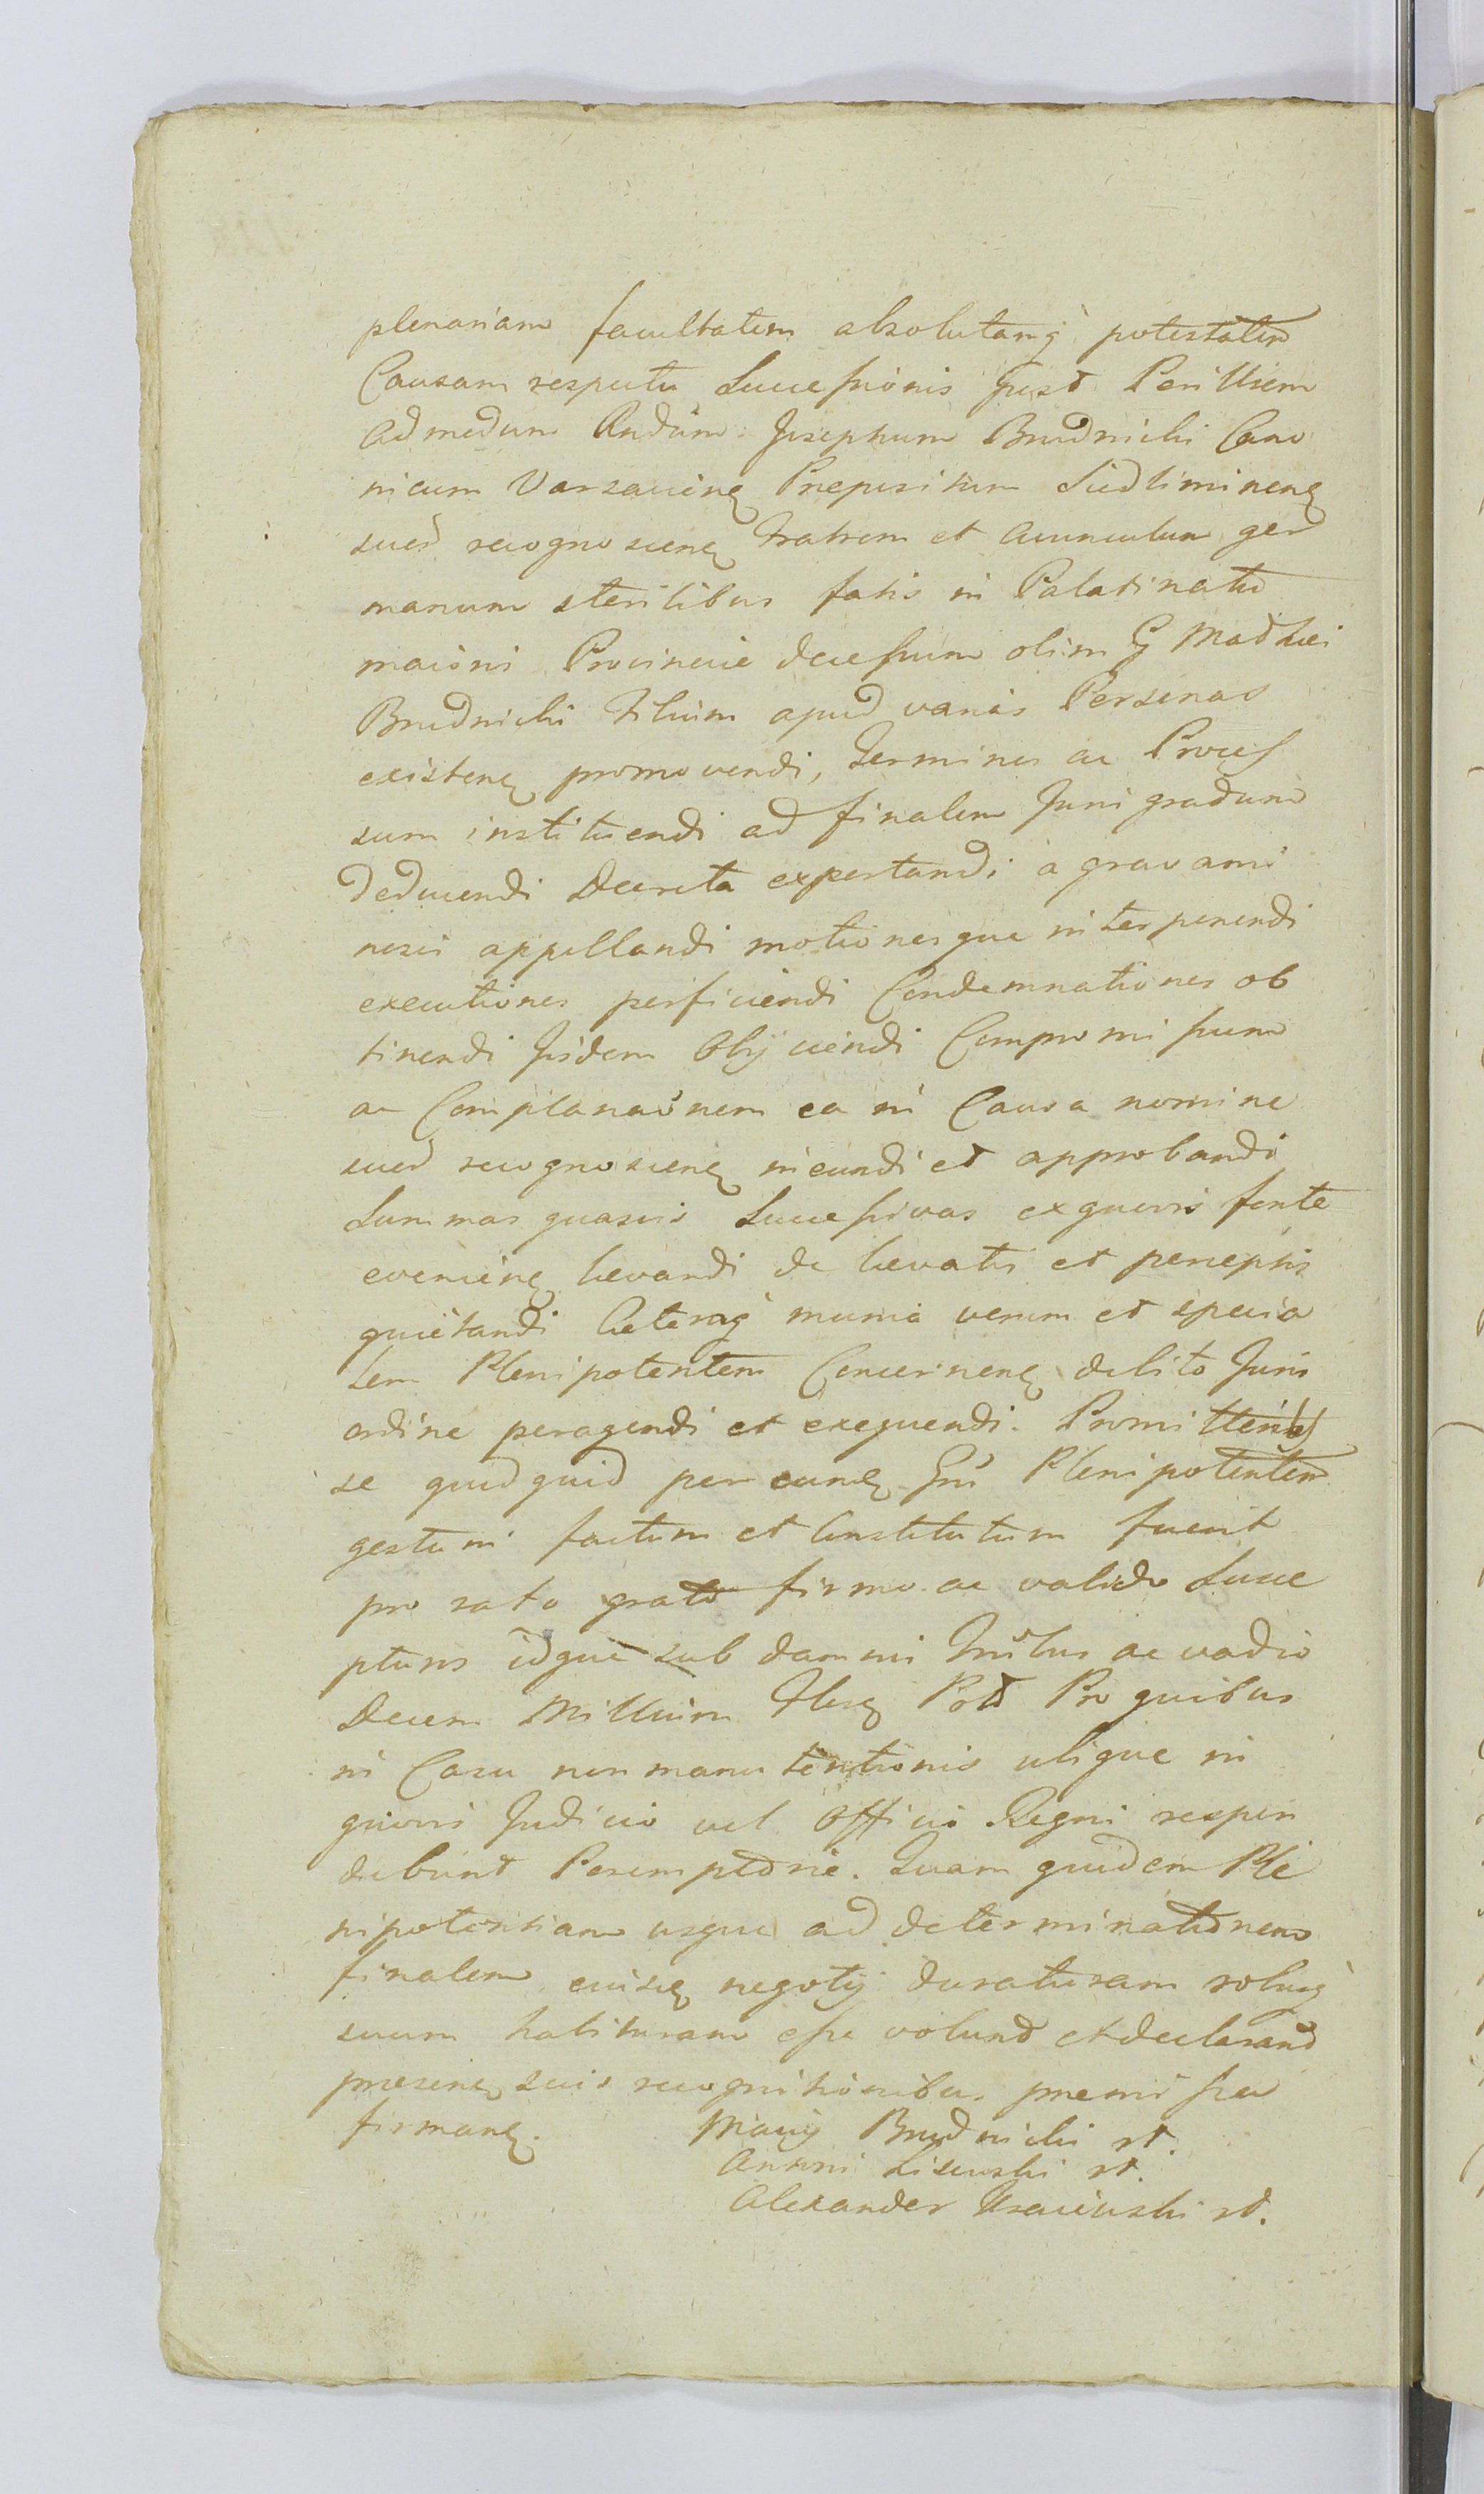 plenariam facultatem absolutamq̀ potestatem
Causam respectu Successionis post Perillrem
Admodum Rndum Josephum Brudnicki Cano
nicum Varsavieng Prepositum
suer recognoscieng Fratrem et Avunculum ger
manum sterilibus fatis in Palatinatu
maioris Provincie decessum olim G Mathei
Brudnicki Filium apud varias Personas
existeng promovendi, Terminos ac Proces
sum instituendi ad finalem Juris gradum
deducendi Decreta exportandi a gravami
nosis appellandi motionesque interponendi
executiones perficiendi Condemnationes ob
tinendi Jisdem Obijciendi Compromissum
ac Complanaonem ea in Causa nomine
suer recognoscieng ineundi et approbandi
Summas quasvis Successivas exquovis fonte
evenieng levandi de levatis et perceptis
quietandi Ceteraq̀ munia verum et specia
lem Plenipotentem Concerneng debito Juris
ordine peragendi et exequendi. Promitten
se quidquid per eung Gn Plenipotentem
gestum factum et Constitutum fuerit
pro rato grato firmo ac valido Susce
pturos idque sub damni Trrūs ac vadio
Decem Millium Fleng Pol Pro quibus
in Casu non manutentionis ubique in
quovis Judicio vel Officio Regni respon
debunt Peremptorie. Quam quidem Ple
nipotentiam usque ad determinationem
finalem cuisvg negotij duraturam roburq̀
suum habituram esse volunt et declarant
preseng suis recognitionibus premissa
firmang. Maciej Brudnicki st.
Antoni Lisowski st.
Alexander st.